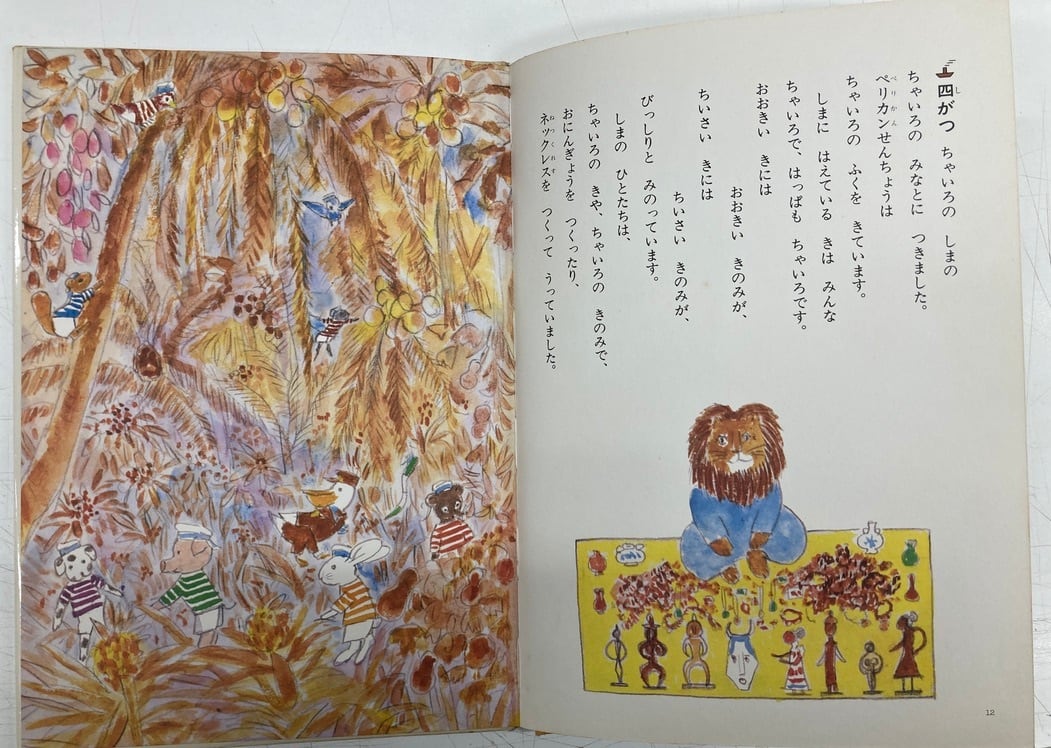 四がつ ちゃいろの しまの
ちゃいろの みなとに つきました。
ペリカンせんちょうは
ちゃいろの ふくを きています。
しまに はえている きは みんな
ちゃいろで、はっぱも ちゃいろです。
おおきい きには
おおきい きのみが、
ちいさい きには
ちいさい きのみが、
びっしりと みのっています。
しまの ひとたちは、
ちゃいろの きや、ちゃいろの きのみで、
おにんぎょうを つくったり、
ネックレスを つくって うっていました。
12